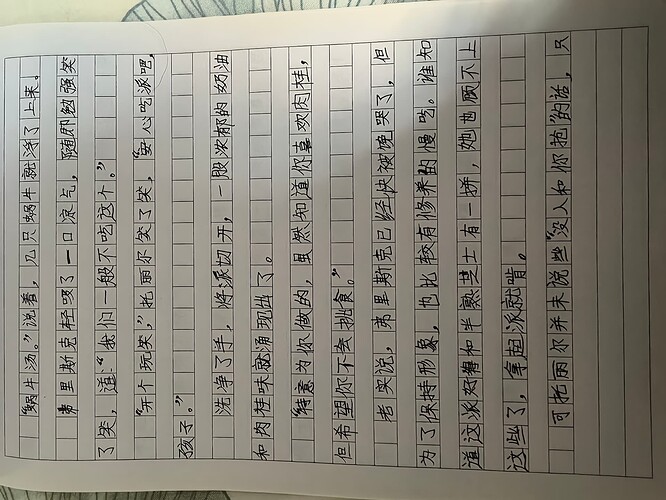 "蜗牛汤。"说着，几只蜗牛就浮了上来。
弗里斯克轻吸了一口凉气，随即勉强笑
了笑，道："我们一般不吃这个。"
"开个玩笑，"托丽尔笑了笑，"安心吃派吧，
孩子。"
洗净了手，将派切开，一股浓郁的奶油
和肉桂味就涌现出了。
"特意为你做的，虽然知道你喜欢肉桂，
但希望你不会挑食。"
老实说，弗里斯克已经快被馋哭了，但
为了保持形象，也比较有修养的慢吃。谁知
道这派好得和半熟芝士有一拼，她也顾不上
这些了，拿起派就啃。
可托丽尔并未说些"没人和你抢"的话，只